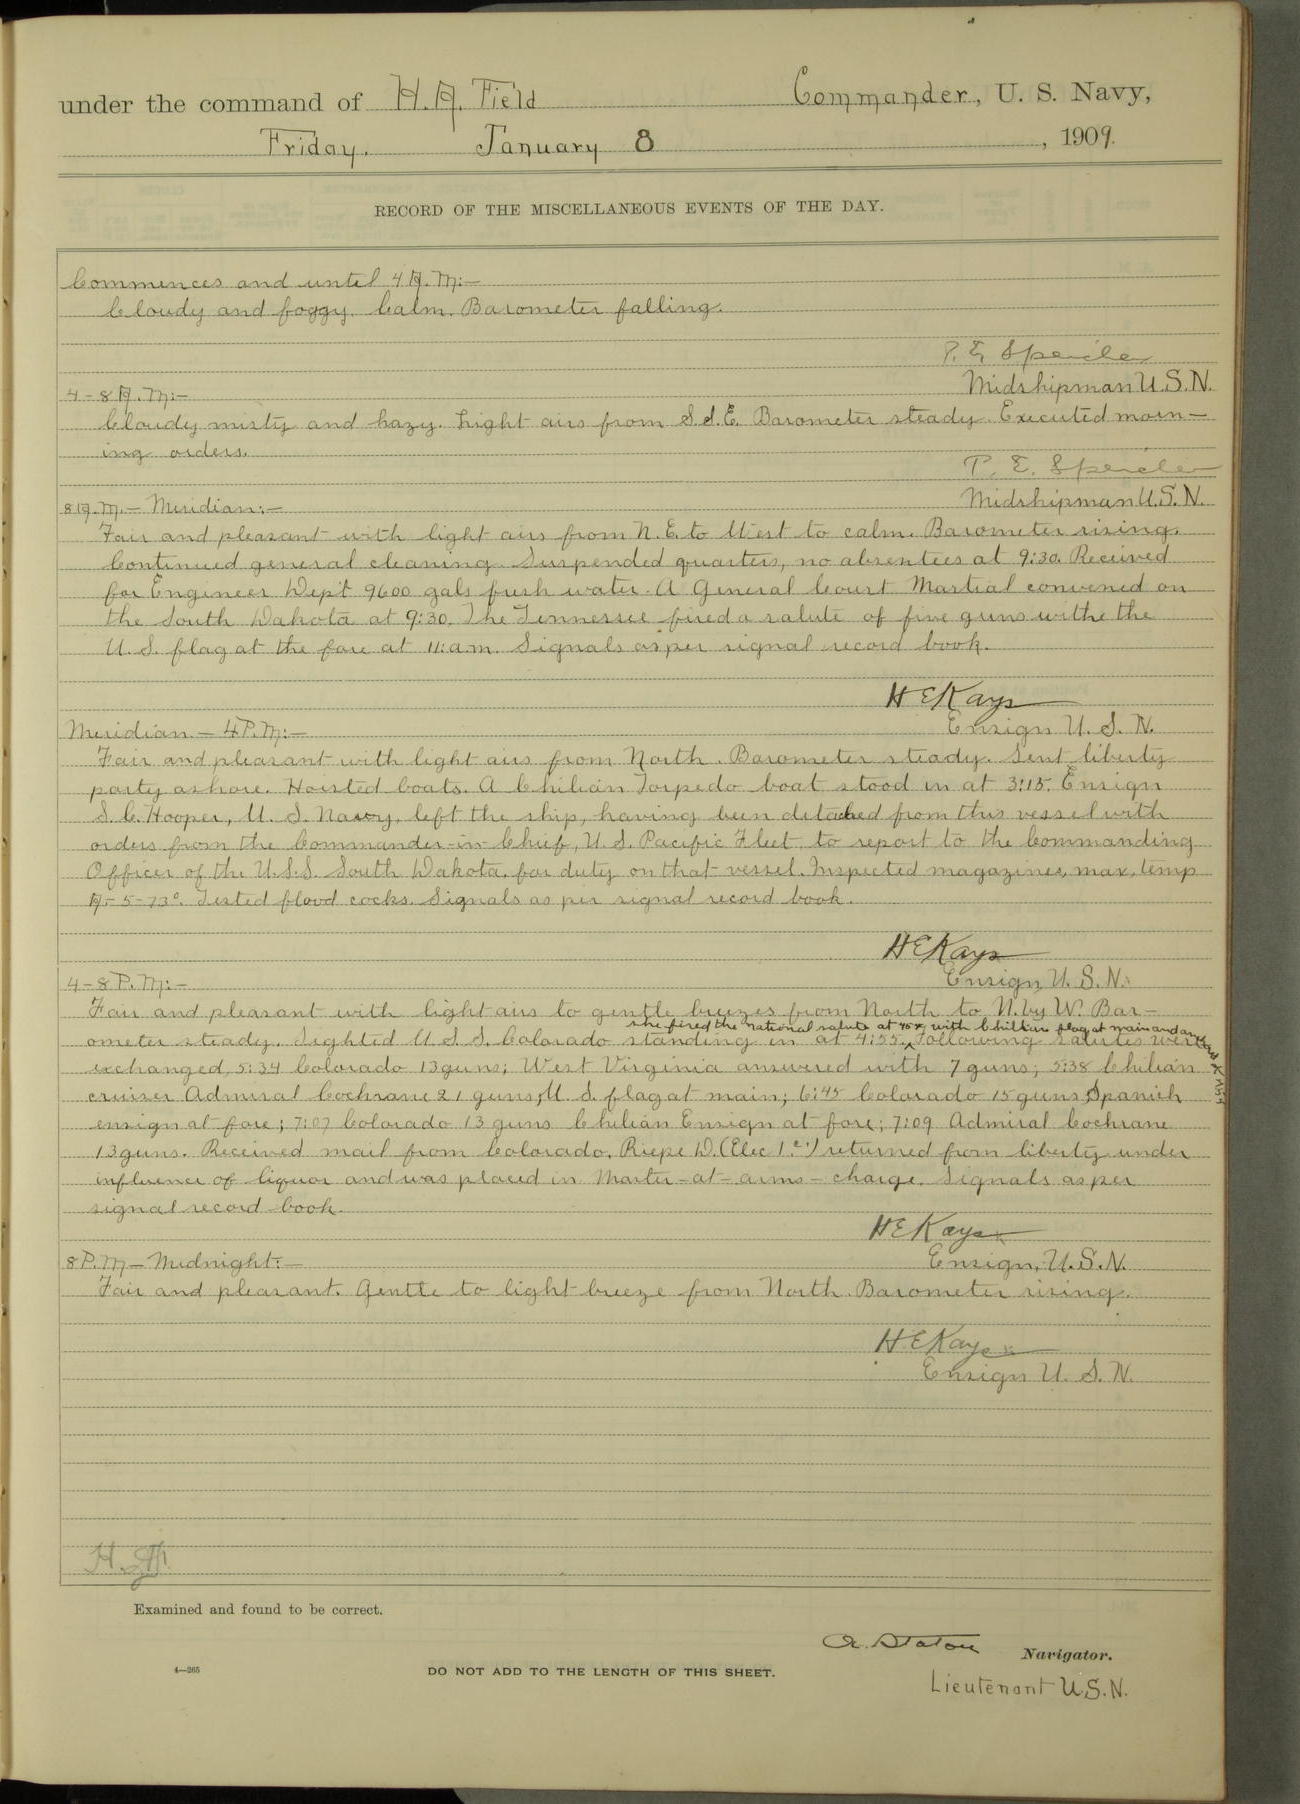 under the command of H. A. Field Commander, U. S. Navy,
Friday. January 8, 1909.
RECORD OF THE MISCELLANEOUS EVENTS OF THE DAY.
Commences and until 4 A. M:—
Cloudy and foggy. Calm. Barometer falling.
P. E. Speicher
Midshipman U.S.N.
4 - 8 A. M:—
Cloudy misty and hazy. Light airs from S.S.E. Barometer steady. Executed morn—
ing orders.
P. E. Speicher
Midshipman U.S.N.
8 A. M. — Meridian:—
Fair and pleasant with light airs from N. E. to West to calm. Barometer rising.
Continued general cleaning. Suspended quarters, no absentees at 9:30. Received
for Engineer Dep't 9600 gals fresh water. A General Court Martial convened on
the South Dakota at 9:30. The Tennessee fired a salute of five guns withe the
U. S. flag at the fore at 11: a.m. Signals as per signal record book.
H E Kays
Ensign U. S. N.
Meridian — 4 P. M:—
Fair and pleasant with light airs from North. Barometer steady. Sent liberty
party ashore. Hoisted boats. A Chilian Torpedo boat stood in at 3:15. Ensign
S. C. Hooper, U. S. Navy, left the ship, having been detached from this vessel with
orders from the Commander-in-Chief, U. S. Pacific Fleet, to report to the Commanding
Officer of the U.S.S. South Dakota, for duty on that vessel. Inspected magazines, max. temp
A-5-73°. Tested flood cocks. Signals as per signal record book.
H E Kays
Ensign, U. S. N.
4-8 P. M:—
Fair and pleasant with light airs to gentle breezes from North to N. by W. Bar—
she fired the national salute with Chilian flag at main and
ometer steady. Sighted U S S Colorado standing in at 4:55. Following salutes were
exchanged, 5:34 Colorado 13 guns; West Virginia answered with 7 guns; 5:38 Chilian
cruiser Admiral Cochrane 21 guns, U. S. flag at main; 6:45 Colorado 15 guns Spanish
ensign at fore; 7:07 Colorado 13 guns Chilian Ensign at fore; 7:09 Admiral Cochrane
13 guns. Received mail from Colorado. Riepe D. (Elec 1.c.) returned from liberty under
influence of liquor and was placed in Master-at-arms-charge. Signals as per
signal record book.
H E Kays
Ensign, U.S.N.
8 P. M — Midnight:—
Fair and pleasant. Gentle to light breeze from North. Barometer rising.
H E Kays
Ensign U. S. N.
Examined and found to be correct.
A. Staton Navigator.
4—265 DO NOT ADD TO THE LENGTH OF THIS SHEET.
Lieutenant U.S.N.